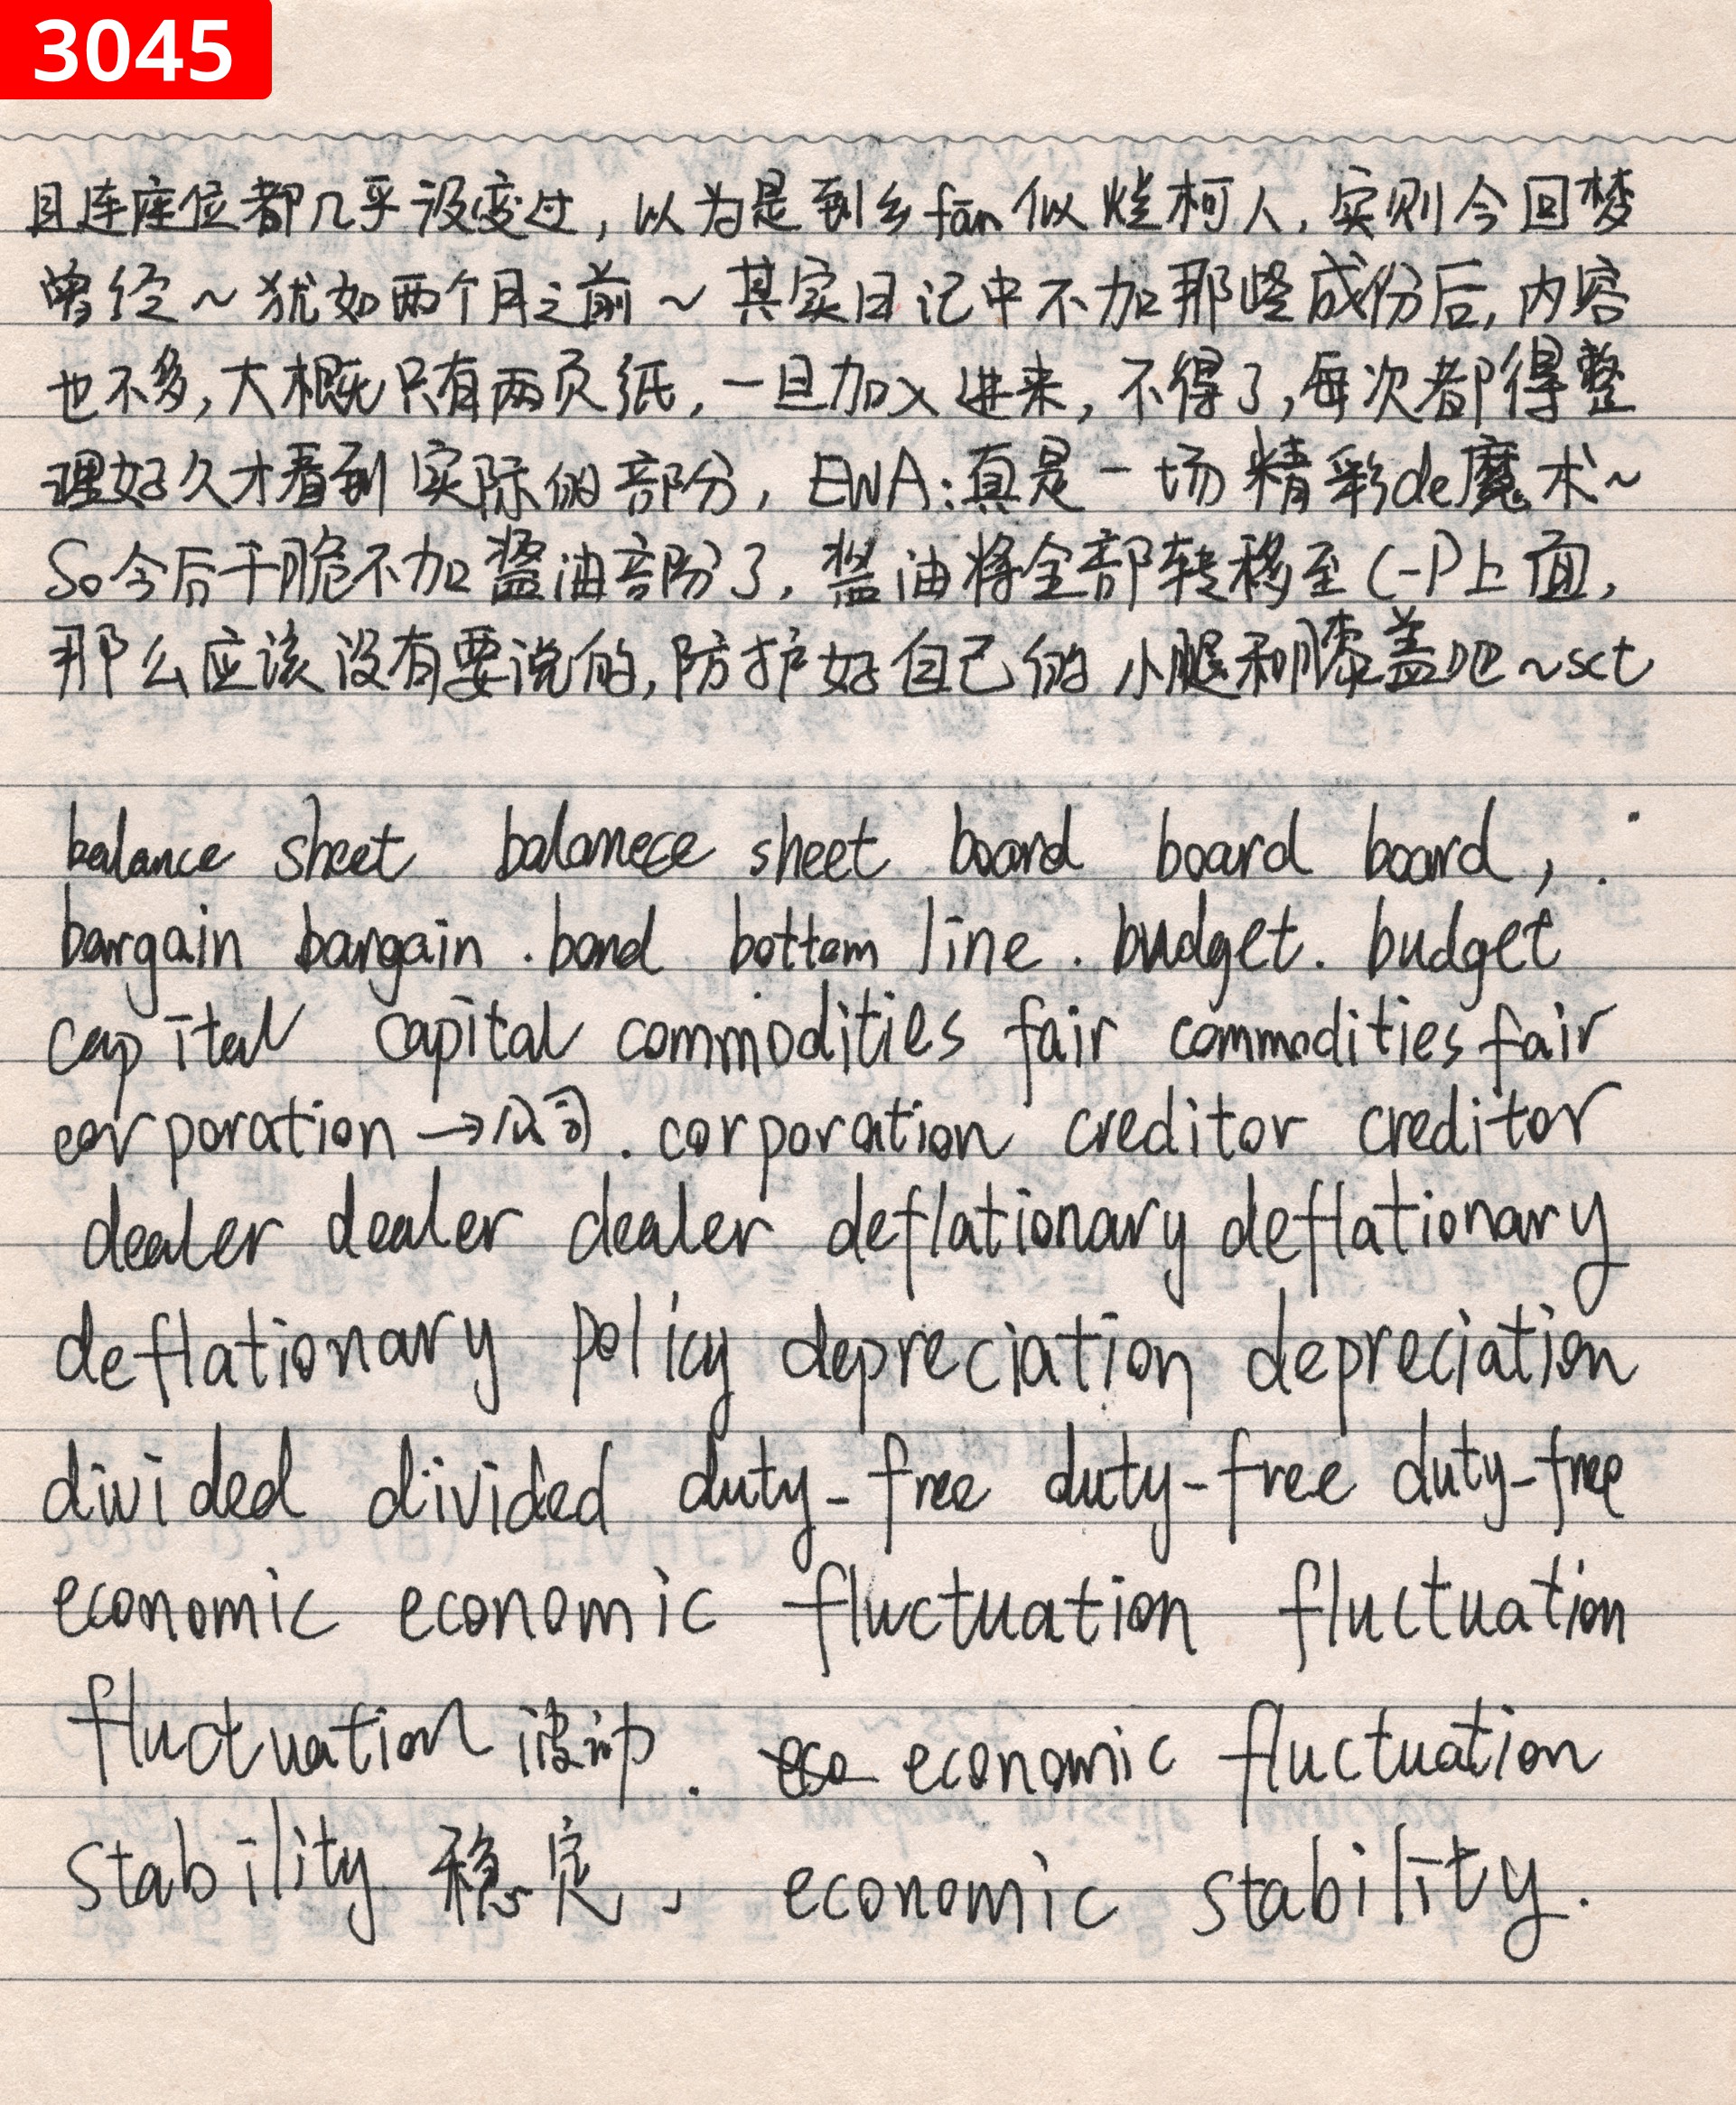 3045
且连座位都几乎没变过，以为是到乡fān似烂柯人，实则今回梦
曾经～犹如两个月之前～其实日记中不加那些成份后，内容
也不多，大概只有两页纸，一旦加入进来，不得了，每次都得整
理好久才看到实际的部分，EWA：真是一场精彩de魔术～
So今后干脆不加酱油部份了，酱油将全部转移至C-P上面，
那么应该没有要说的，防护好自己的小腿和膝盖吧～sct
balance sheet balanece sheet board board board，.
bargain bargain . bond bottom line . budget. budget
capital capital commodities fair commodities fair
corporation →公司 . corporation creditor creditor
dealer dealer dealer deflationary deflationary
deflationary policy depreciation depreciation
divided divided duty-free duty-free duty-free
economic economic fluctuation fluctuation
fluctuation 波动 . eco economic fluctuation
stability 稳定、 economic stability.